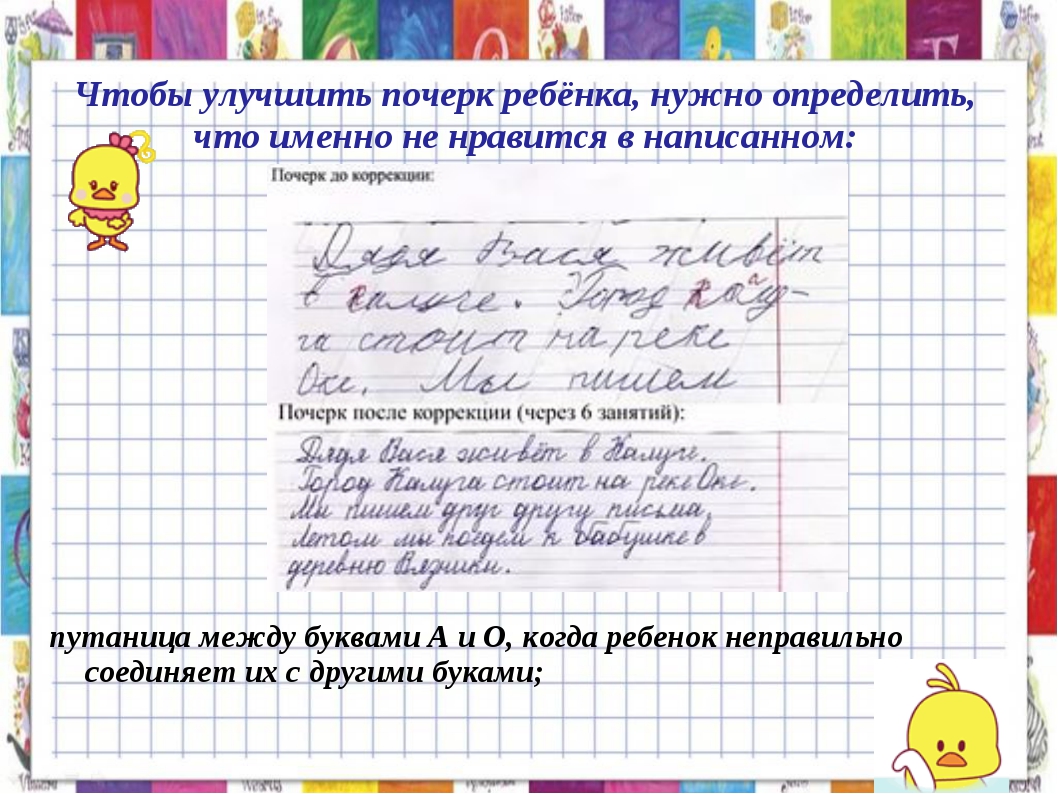 Чтобы улучшить почерк ребёнка, нужно определить,
что именно не нравится в написанном:
Почерк до коррекции:
Дядя Вася живёт
в калуге. Город
га стоит на реке
Оке. Мы пишем
Почерк после коррекции (через 6 занятий):
Дядя Вася живёт в Калуге.
Город Калуга стоит на реке Оке.
Мы пишем друг другу письма.
Летом мы поедем к бабушке в
деревню Вязники.
путаница между буквами А и О, когда ребенок неправильно
соединяет их с другими буками;